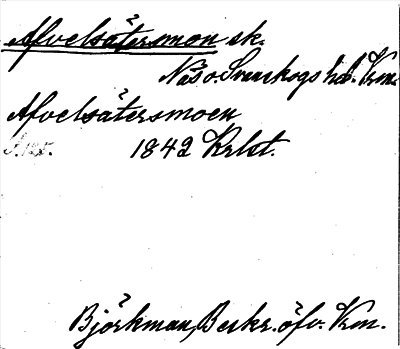 Afvelsätersmon sk.
Näs o. Svenskogs hd. Vrm.
Afvelsätersmoen
S. 125. 1842 Krlst.
Björkman, Beskr. öfv. Vrm.